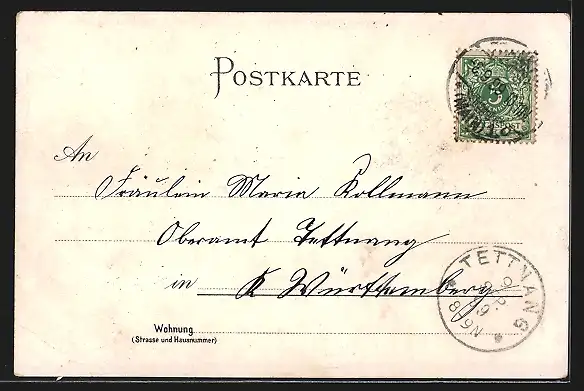 POSTKARTE
An
Fräulein Maria Kollmann
Oberamt Tettnang
in K Württemberg
Wohnung
(Strasse und Hausnummer)
TETTNANG